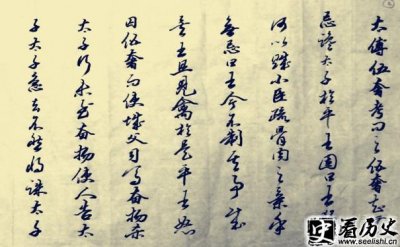 太傅伍奢考问之伍奢知
忌谗太子於平王因曰王
何以賊小臣疏骨肉之亲乎
無忌曰王今不制其事成
矣王且見禽於是平王怒
囚伍奢而使城父司馬奮揚殺
太子行未至奮揚使人告太
子太子急去不然将誅太子
看历史
www.seelishi.cn